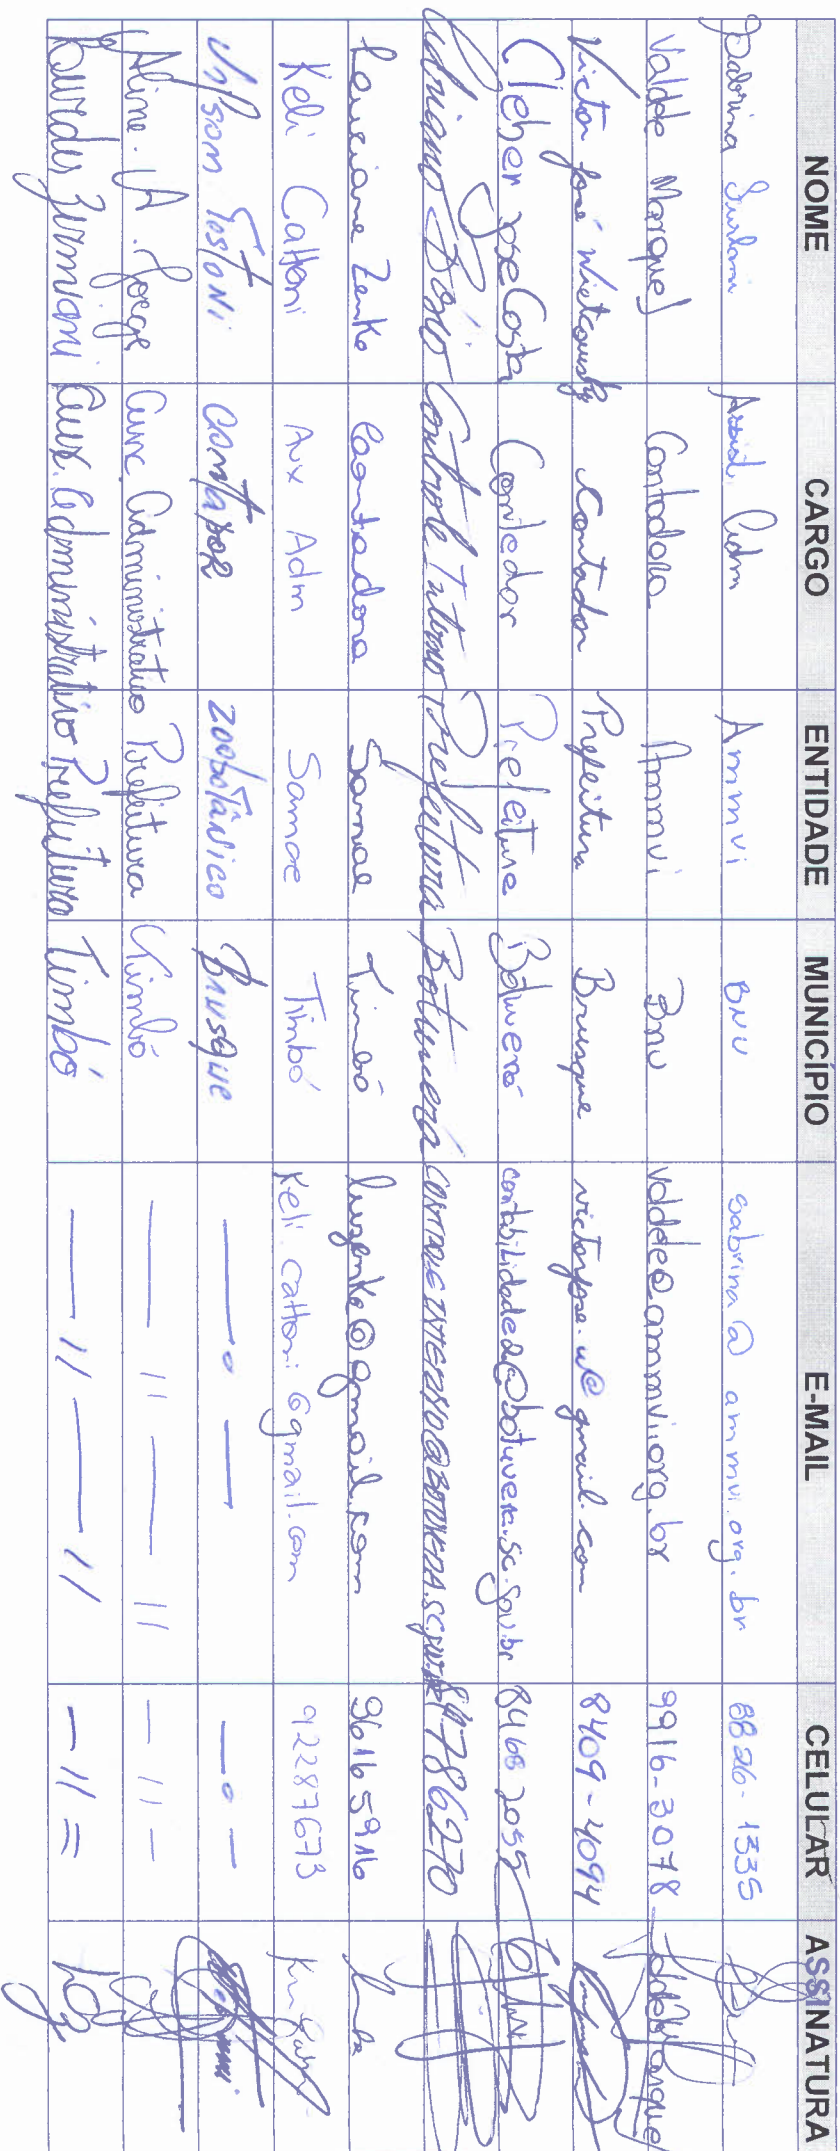 NOME CARGO ENTIDADE MUNICÍPIO E-MAIL CELULAR ASSINATURA
Sabrina Assist. Adm Ammvi BNU sabrina@ammvi.org.br 8826-1335
Valdete Marques Contadora Ammvi Bnu valdete@ammvi.org.br 9916-3078
Victor José Contador Prefeitura Brusque victorjose.w@gmail.com 8409-4094
Cleber José Costa Contador Prefeitura Botuverá contabilidade2@botuvera.sc.gov.br 8468 2055
Adriano Bósio Controle Interno Prefeitura Botuverá CONTROLEINTERNO@BOTUVERA.SC.GOV.BR 84786270
Luciane Zenke Contadora Samae Timbó luzenke@gmail.com 96165916
Keli Cattoni Aux Adm Samae Timbó Keli.cattoni@gmail.com 92287673
Tostoni Contador Zoobotânico Brusque — o — — o —
Aline. A. Jorge Aux Administrativo Prefeitura Timbó — 11 — 11 — 11 —
Lourdes Aux. Administrativo Prefeitura Timbó — 11 — 11 — 11 =